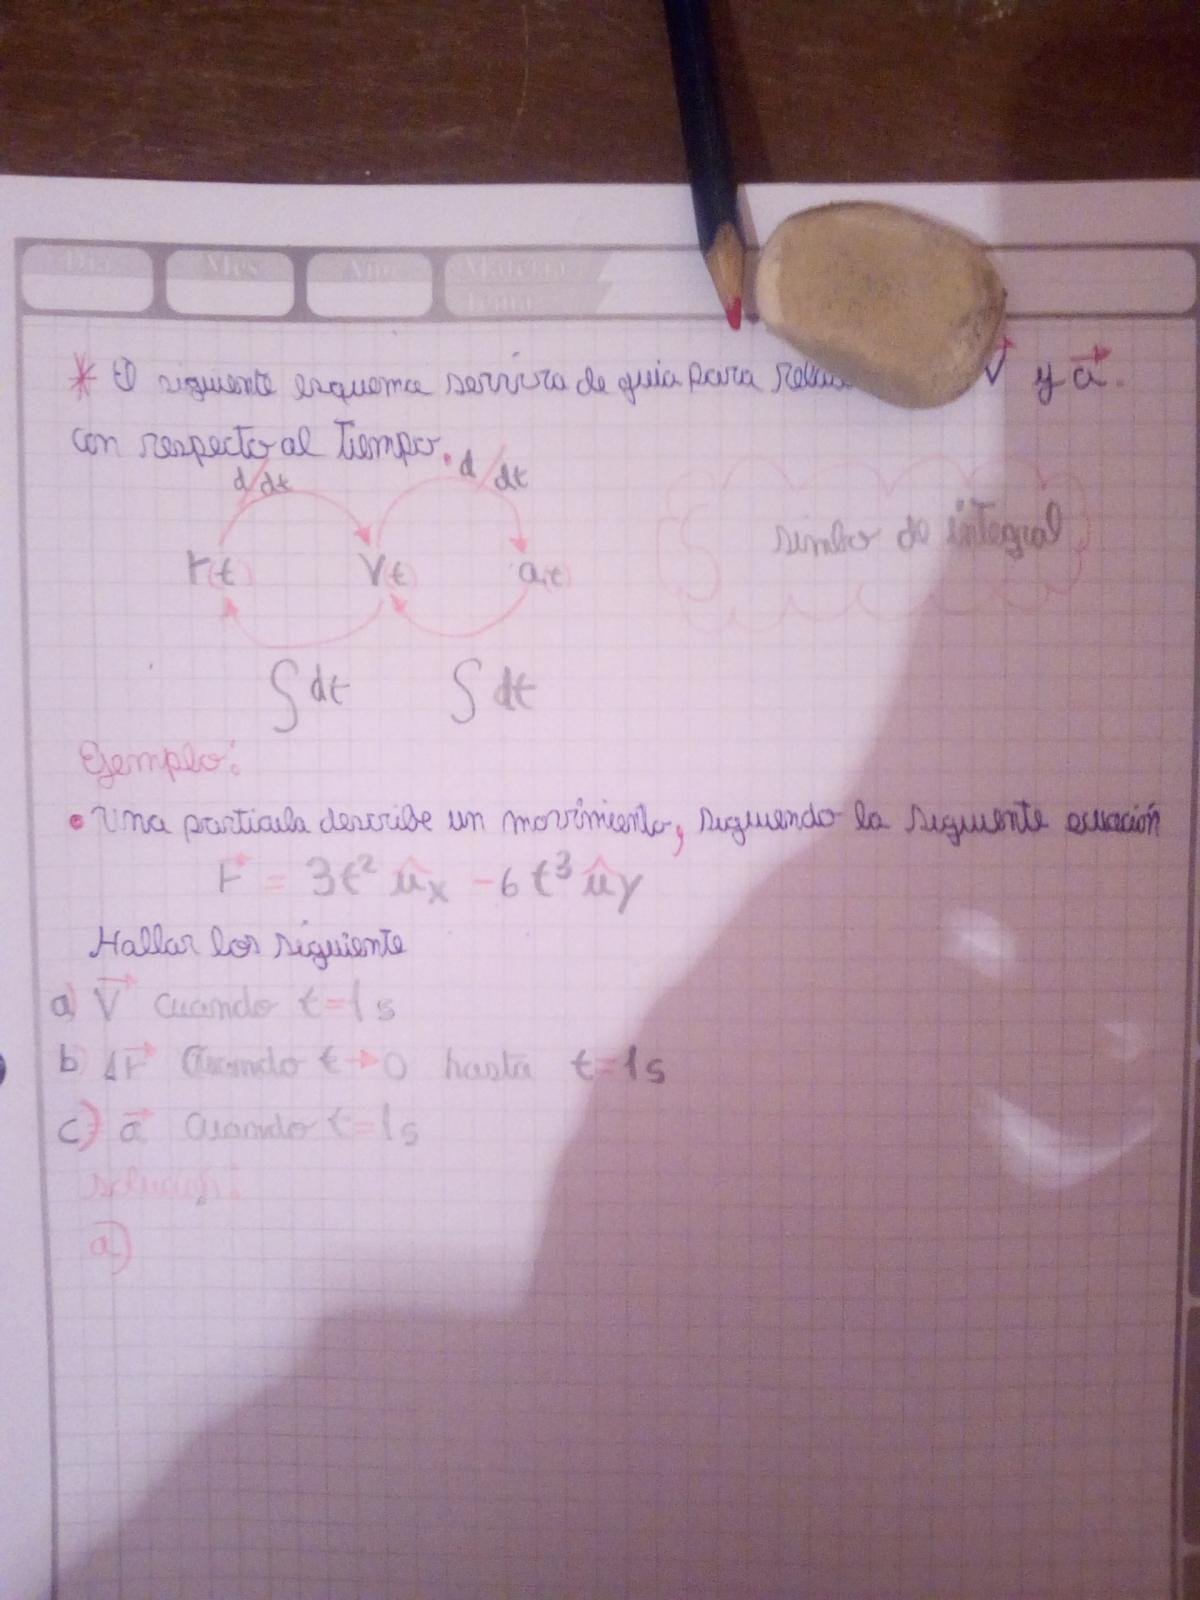 Día Mes Año Materia:
Tema:
* El siguiente esquema servira de guia para V y a.
con respecto al tiempo.
d/dt d/dt
r(t) V(t) a(t)
simbo de integral
∫dt ∫dt
Ejemplo:
• Una particula describe un movimiento, siguiendo la siguiente ecuación
r = 3t² ûx - 6t³ ûy
Hallar los siguiente
a) V cuando t=1s
b) Δr Cuando t→0 hasta t=1s
c) a cuando t=1s
solucion:
a)